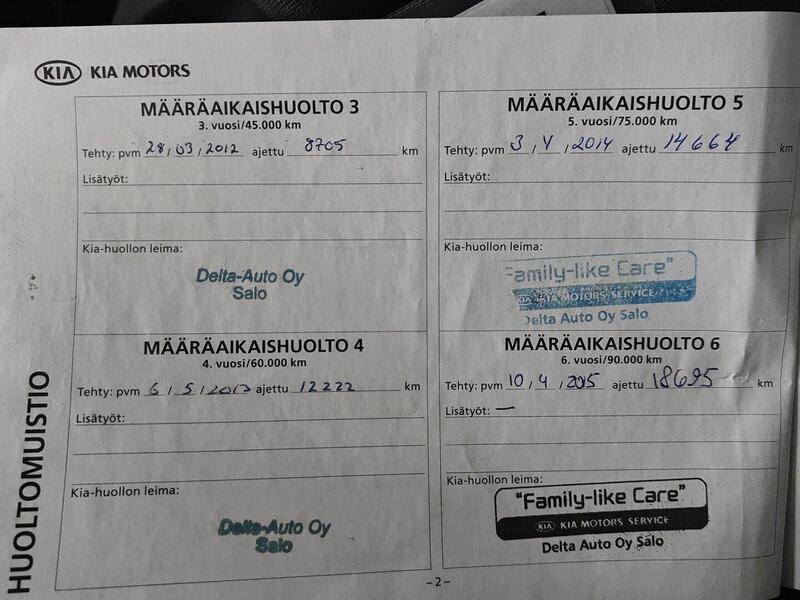 KIA KIA MOTORS
HUOLTOMUISTIO
MÄÄRÄAIKAISHUOLTO 3
3. vuosi/45.000 km
Tehty: pvm 28/03/2012 ajettu 8705 km
Lisätyöt:
Kia-huollon leima:
Delta-Auto Oy
Salo
MÄÄRÄAIKAISHUOLTO 4
4. vuosi/60.000 km
Tehty: pvm 6/5/2013 ajettu 12222 km
Lisätyöt:
Kia-huollon leima:
Delta-Auto Oy
Salo
MÄÄRÄAIKAISHUOLTO 5
5. vuosi/75.000 km
Tehty: pvm 3/V/2014 ajettu 14664 km
Lisätyöt:
Kia-huollon leima:
Family-like Care"
KIA KIA MOTORS SERVICE
Delta Auto Oy Salo
MÄÄRÄAIKAISHUOLTO 6
6. vuosi/90.000 km
Tehty: pvm 10/4/2015 ajettu 18695 km
Lisätyöt: —
Kia-huollon leima:
"Family-like Care"
KIA KIA MOTORS SERVICE
Delta Auto Oy Salo
-2-